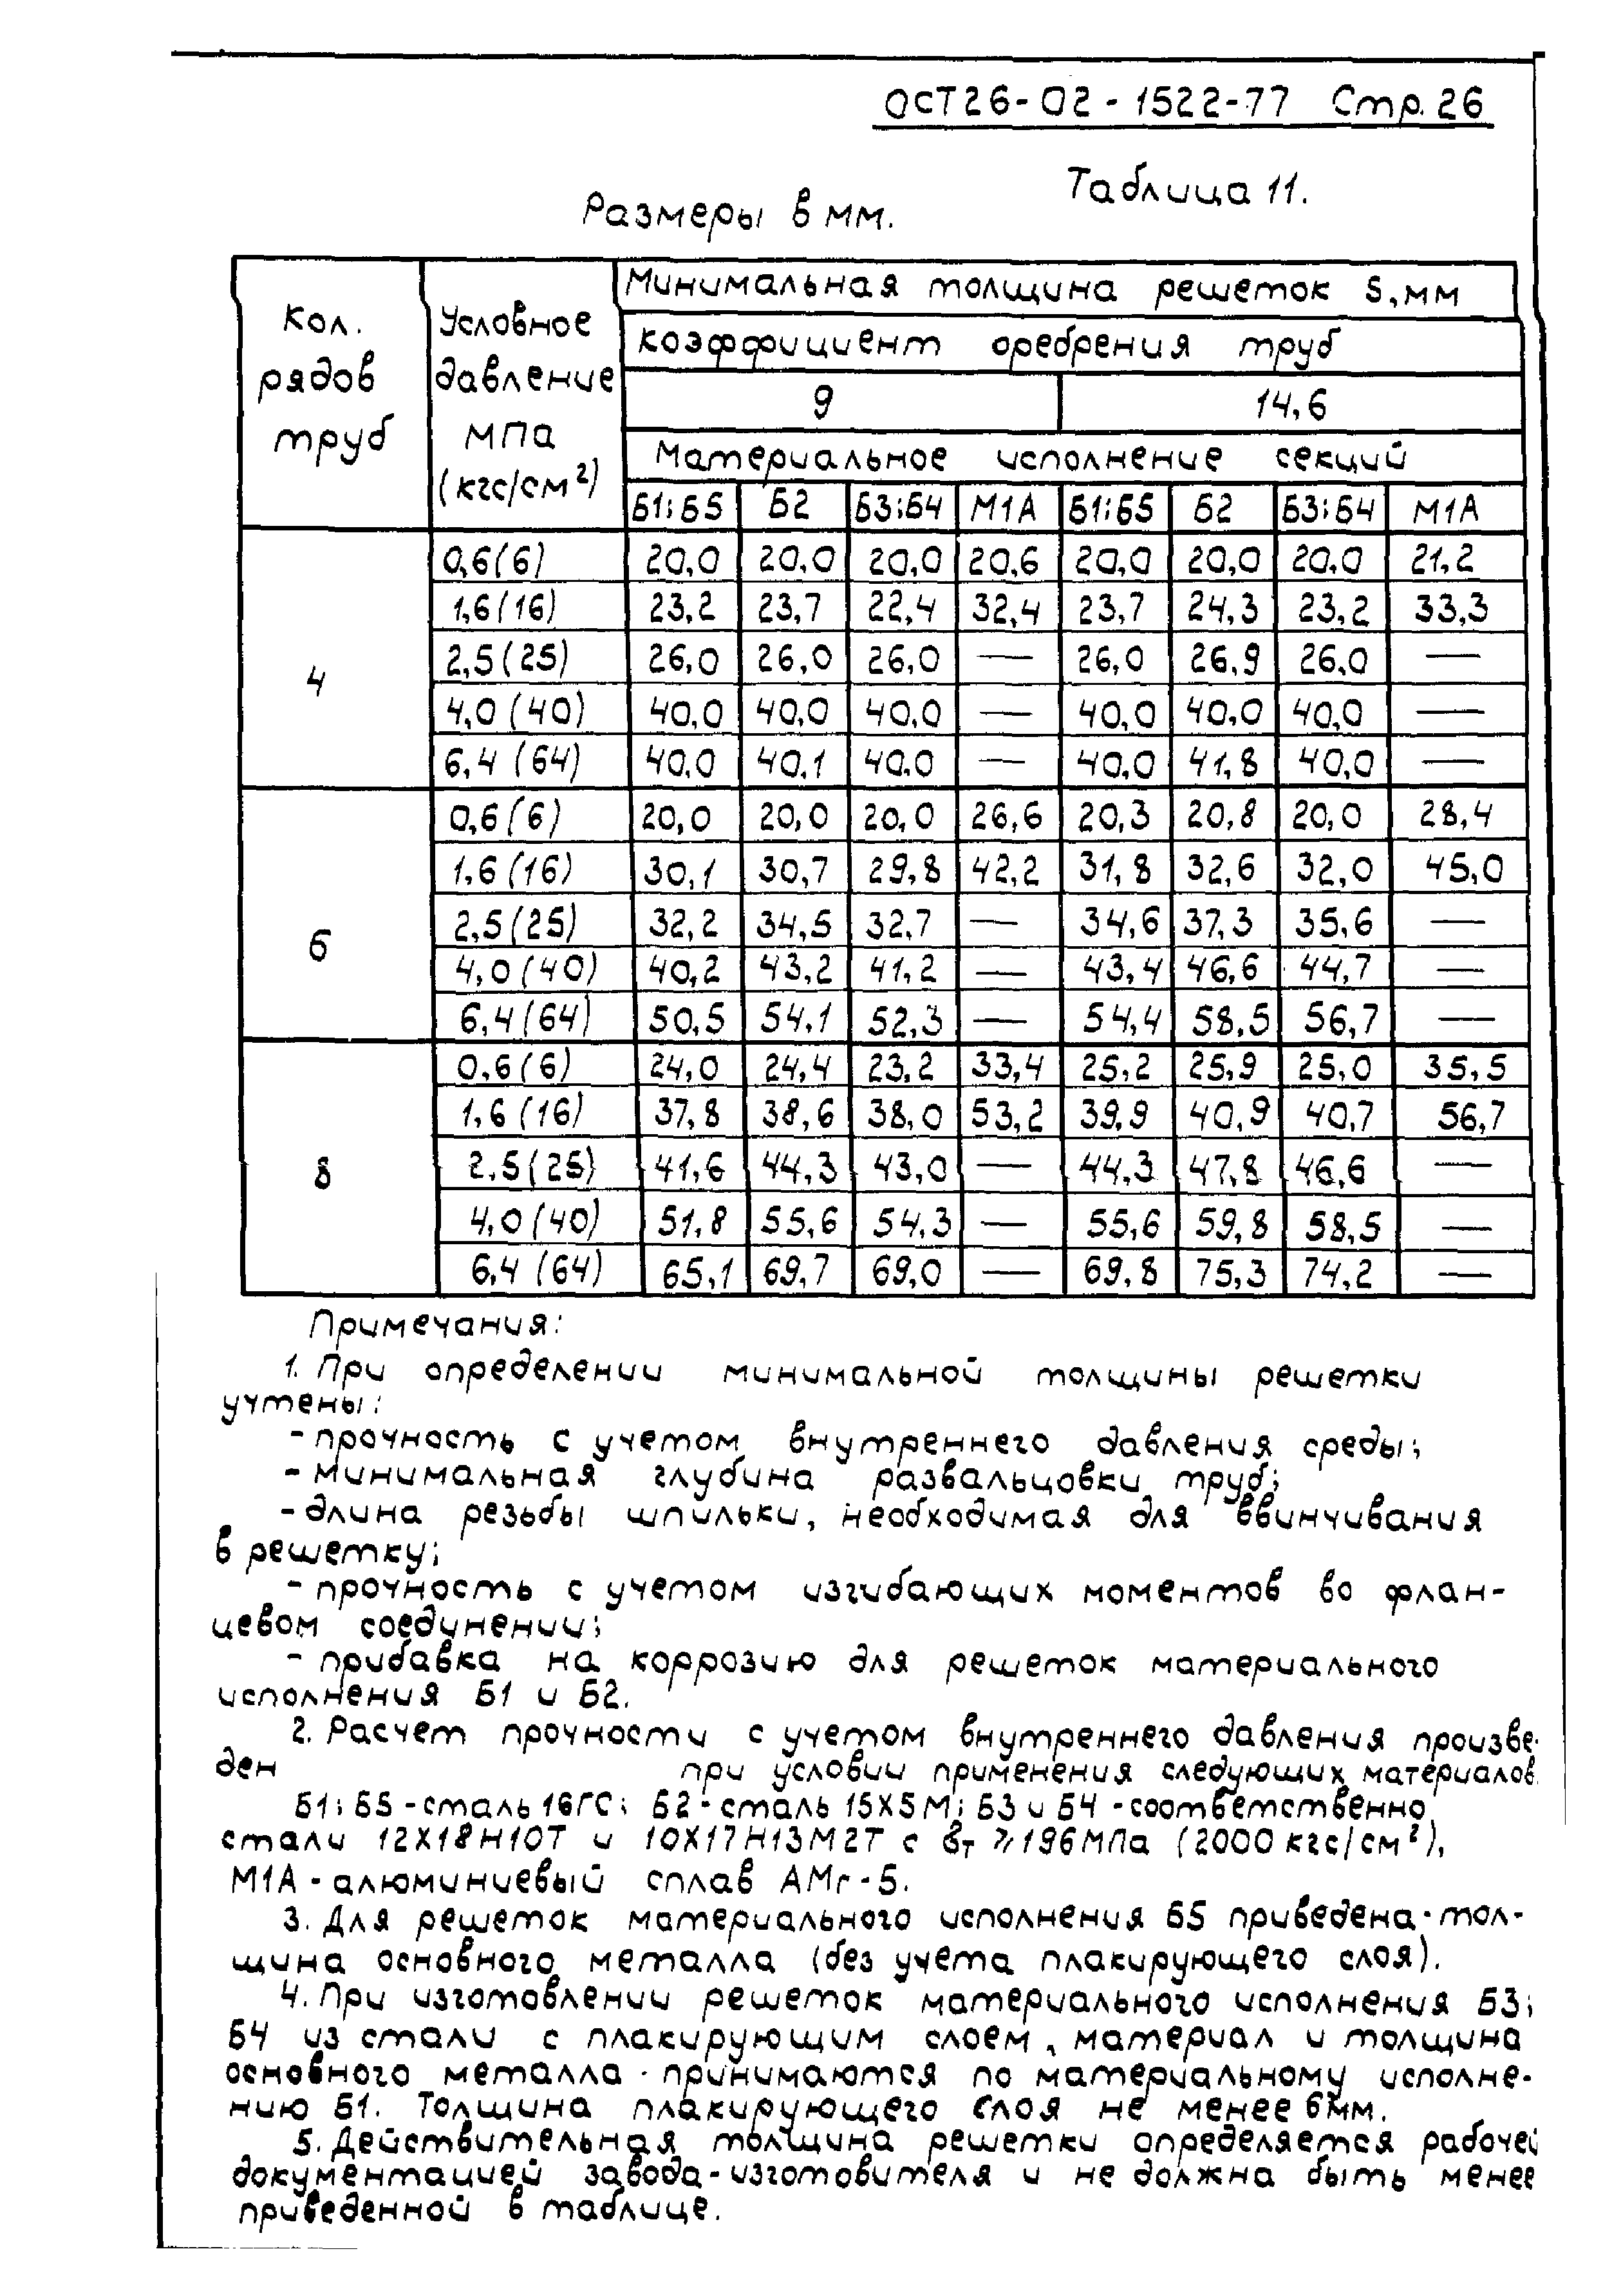 ОСТ26-02-1522-77 Стр.26
Таблица 11.
Размеры в мм.
Кол. рядов труб
Условное давление МПа (кгс/см²)
Минимальная толщина решеток S,мм
коэффициент оребрения труб
9 14,6
Материальное исполнение секций
Б1;Б5 Б2 Б3;Б4 М1А Б1;Б5 Б2 Б3;Б4 М1А
4
0,6(6) 20,0 20,0 20,0 20,6 20,0 20,0 20,0 21,2
1,6(16) 23,2 23,7 22,4 32,4 23,7 24,3 23,2 33,3
2,5(25) 26,0 26,0 26,0 — 26,0 26,9 26,0 —
4,0(40) 40,0 40,0 40,0 — 40,0 40,0 40,0 —
6,4(64) 40,0 40,1 40,0 — 40,0 41,8 40,0 —
6
0,6(6) 20,0 20,0 20,0 26,6 20,3 20,8 20,0 28,4
1,6(16) 30,1 30,7 29,8 42,2 31,8 32,6 32,0 45,0
2,5(25) 32,2 34,5 32,7 — 34,6 37,3 35,6 —
4,0(40) 40,2 43,2 41,2 — 43,4 46,6 44,7 —
6,4(64) 50,5 54,1 52,3 — 54,4 58,5 56,7 —
8
0,6(6) 24,0 24,4 23,2 33,4 25,2 25,9 25,0 35,5
1,6(16) 37,8 38,6 38,0 53,2 39,9 40,9 40,7 56,7
2,5(25) 41,6 44,3 43,0 — 44,3 47,8 46,6 —
4,0(40) 51,8 55,6 54,3 — 55,6 59,8 58,5 —
6,4(64) 65,1 69,7 69,0 — 69,8 75,3 74,2 —
Примечания:
1. При определении минимальной толщины решетки
учтены:
- прочность с учетом внутреннего давления среды;
- минимальная глубина развальцовки труб;
- длина резьбы шпильки, необходимая для ввинчивания
в решетку;
- прочность с учетом изгибающих моментов во флан-
цевом соединении;
- прибавка на коррозию для решеток материального
исполнения Б1 и Б2.
2. Расчет прочности с учетом внутреннего давления произве-
ден при условии применения следующих материалов
Б1; Б5 - сталь 16ГС; Б2 - сталь 15Х5М; Б3 и Б4 - соответственно
стали 12Х18Н10Т и 10Х17Н13М2Т с бт ⩾196МПа (2000 кгс/см²),
М1А - алюминиевый сплав АМг-5.
3. Для решеток материального исполнения Б5 приведена тол-
щина основного металла (без учета плакирующего слоя).
4. При изготовлении решеток материального исполнения Б3;
Б4 из стали с плакирующим слоем, материал и толщина
основного металла принимаются по материальному исполне-
нию Б1. Толщина плакирующего слоя не менее 6мм.
5. Действительная толщина решетки определяется рабочей
документацией завода-изготовителя и не должна быть менее
приведенной в таблице.